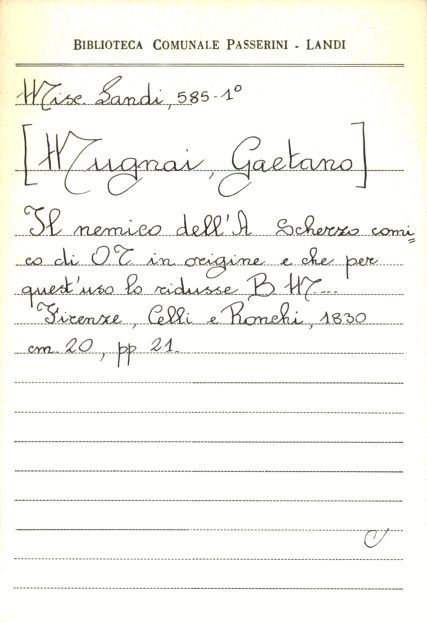 BIBLIOTECA COMUNALE PASSERINI - LANDI
Misc. Landi, 585-1°
[Mugnai, Gaetano]
Il nemico dell'A Scherzo comi=
co di OT in origine e che per
quest'uso lo ridusse B M...
Firenze, Celli e Ronchi, 1830
cm. 20, pp 21.